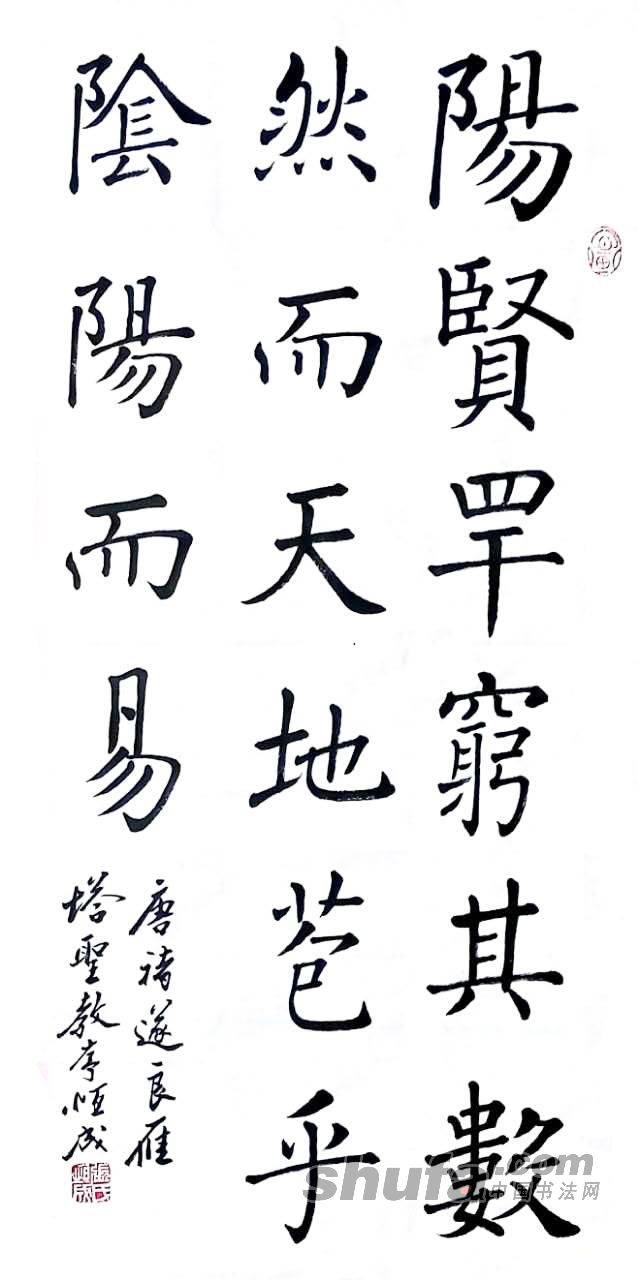 陽賢罕窮其數
然而天地苞乎
陰陽而易
唐褚遂良雁
塔聖教序恒成
shufa.com
中国书法网